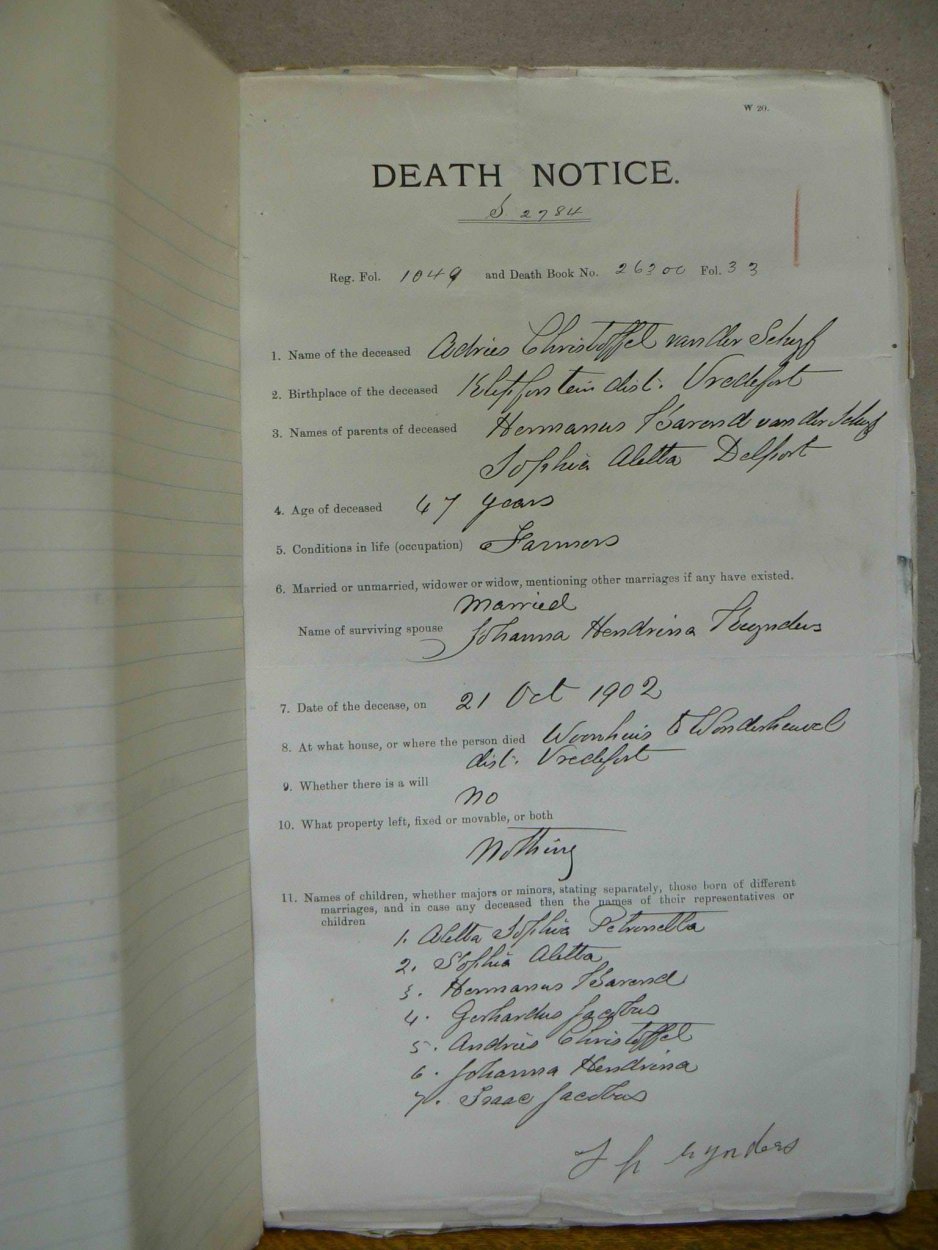 W 20.
DEATH NOTICE.
S. 2784
Reg. Fol. 1049 and Death Book No. 26300 Fol. 33
1. Name of the deceased Adries Christoffel van der Schyf
2. Birthplace of the deceased Klipfontein dist: Vredefort
3. Names of parents of deceased Hermanus Barend van der Schyf
Sophia Aletta Delport
4. Age of deceased 47 years
5. Conditions in life (occupation) Farmers
6. Married or unmarried, widower or widow, mentioning other marriages if any have existed.
Married
Name of surviving spouse Johanna Hendrina Reynders
7. Date of the decease, on 21 Oct 1902
8. At what house, or where the person died Woonhuis Wonderheuvel
dist: Vredefort
9. Whether there is a will
No
10. What property left, fixed or movable, or both
Nothing
11. Names of children, whether majors or minors, stating separately, those born of different
marriages, and in case any deceased then the names of their representatives or
children
1. Aletta Sophia Petronella
2. Sophia Aletta
3. Hermanus Barend
4. Gerhardus Jacobus
5. Andries Christoffel
6. Johanna Hendrina
7. Isaac Jacobus